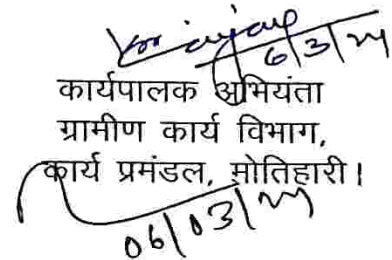 6/3/24
कार्यपालक अभियंता
ग्रामीण कार्य विभाग,
कार्य प्रमंडल, मोतिहारी।
06/03/24